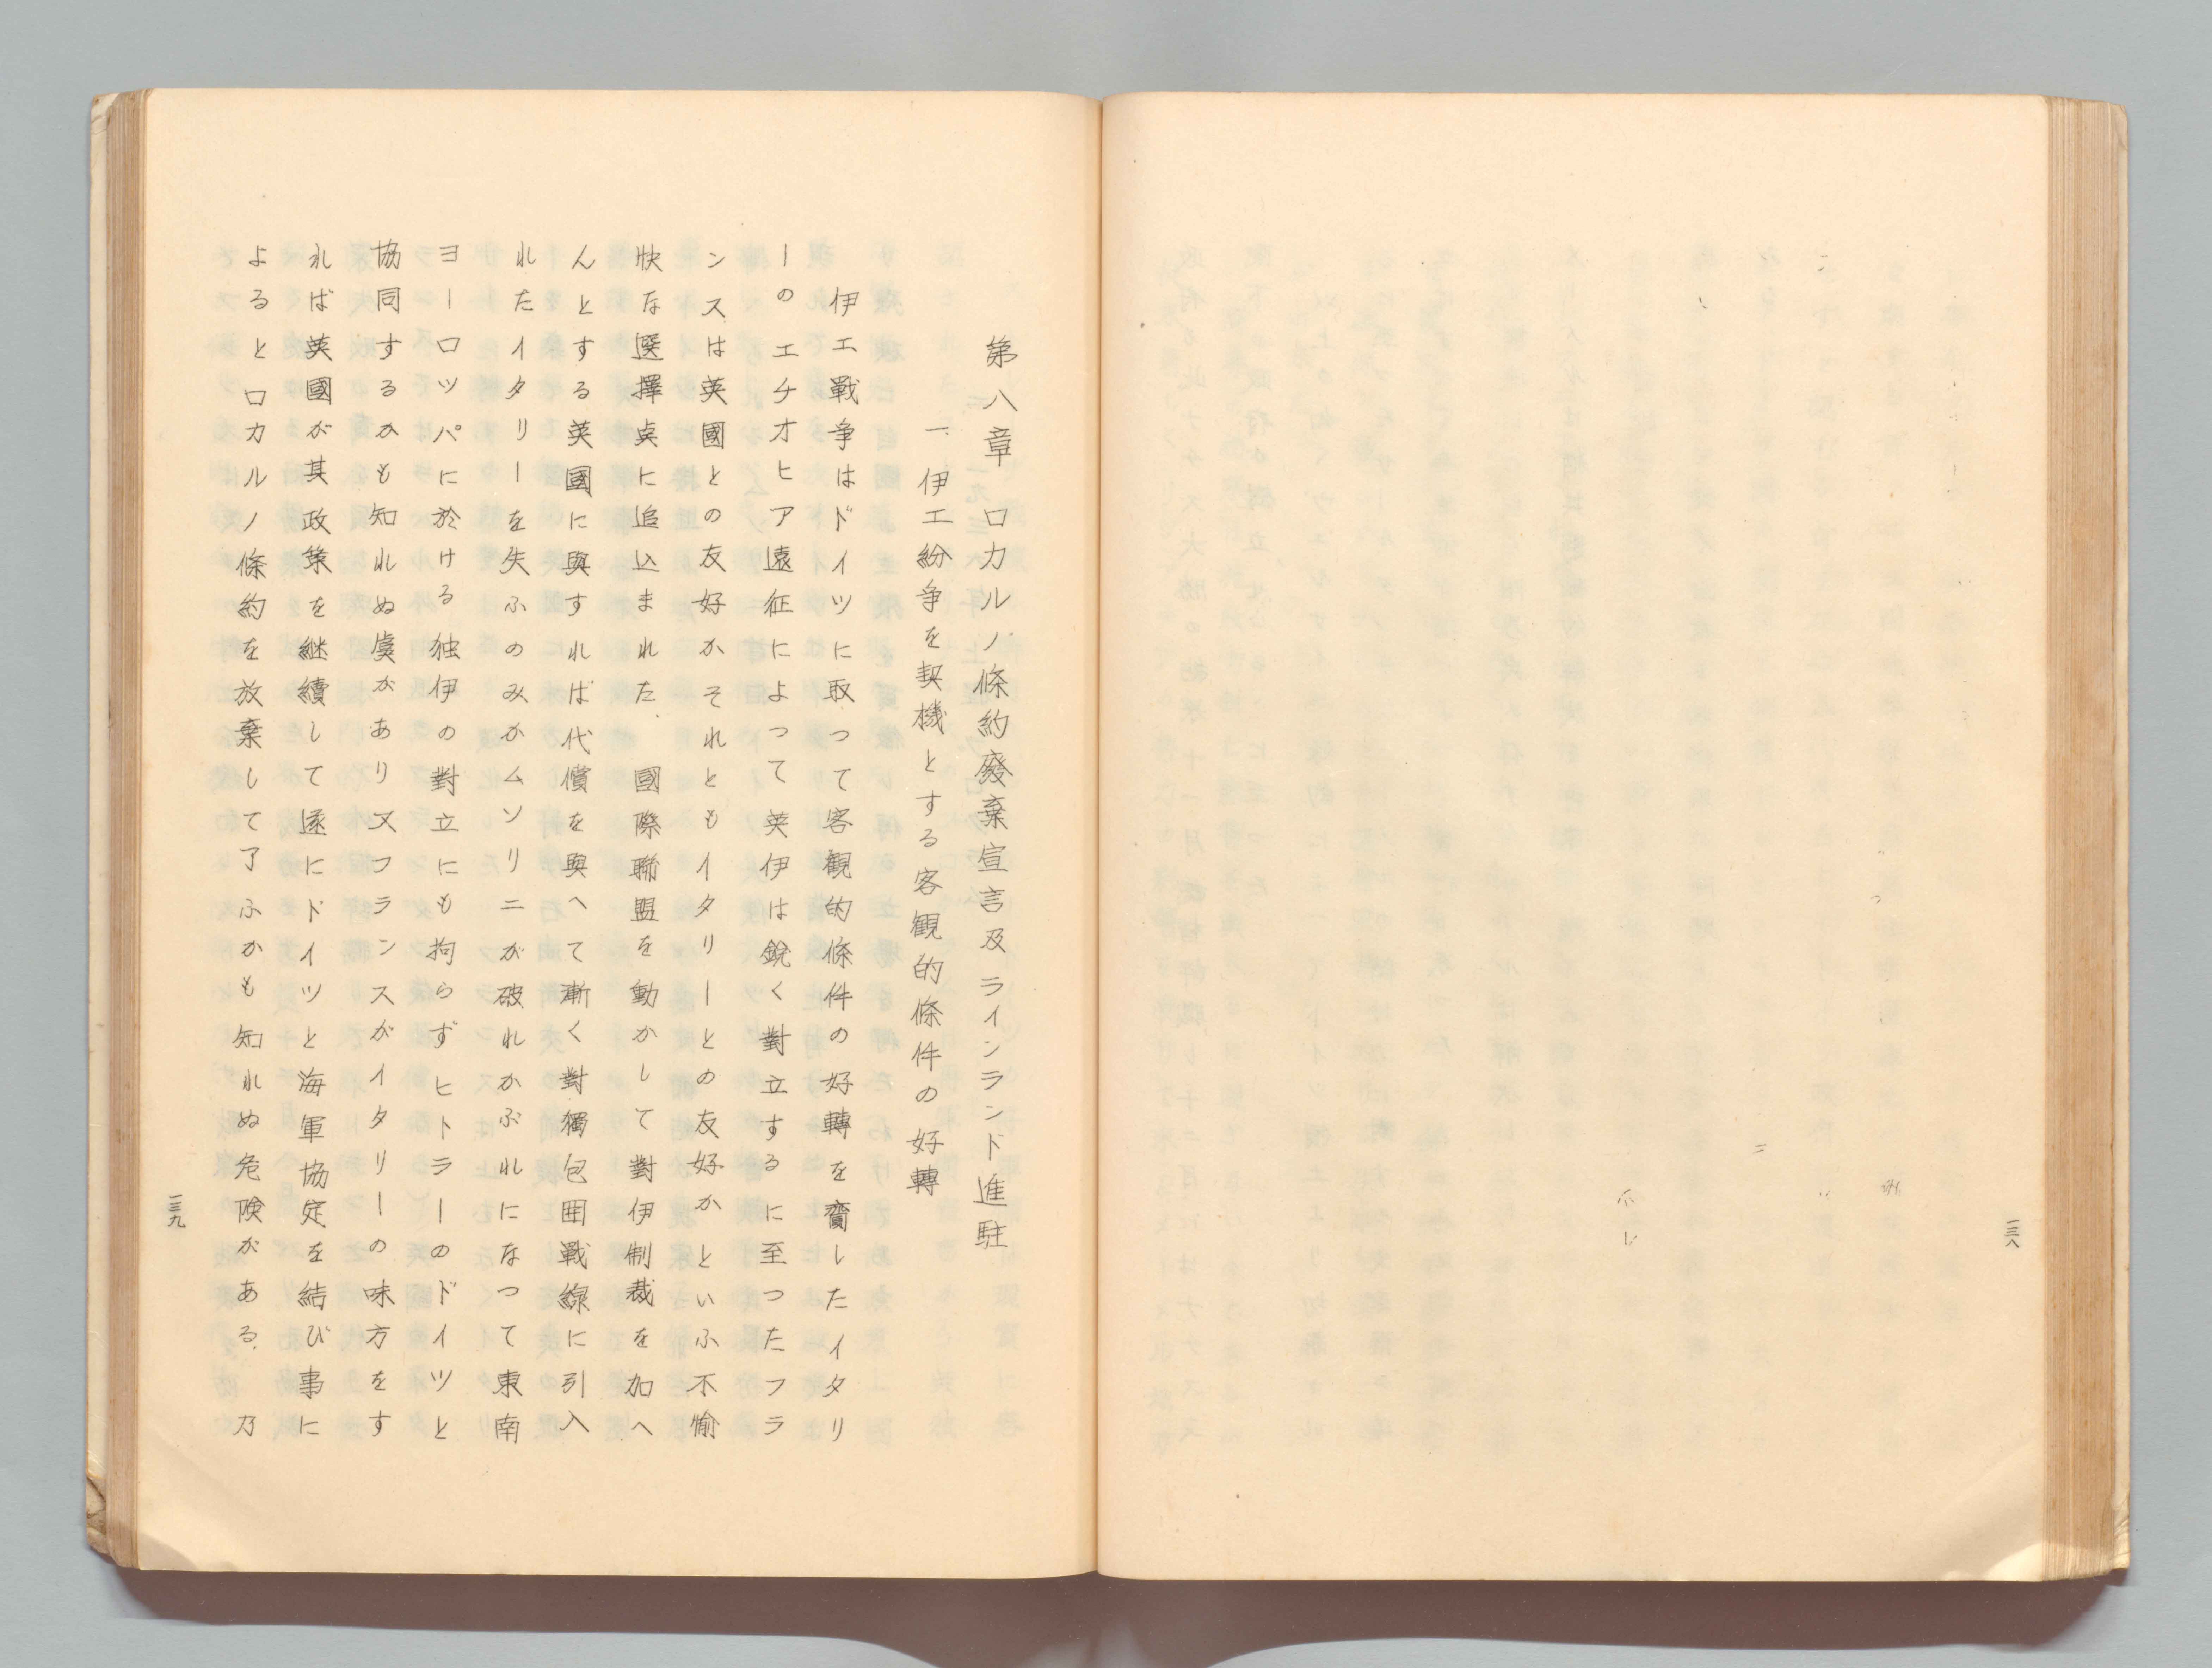 一三八
第八章 ロカルノ條約廢棄宣言及ラインランド進駐
一、伊エ紛争を契機とする客観的條件の好轉
伊エ戰争はドイツに取つて客観的條件の好轉を齎したイタリ
ーのエチオヒア遠征によつて英伊は銳く對立するに至つたフラ
ンスは英國との友好かそれともイタリーとの友好かといふ不愉
快な選擇点に追込まれた. 國際聯盟を動かして對伊制裁を加へ
んとする英國に與すれば代償を與へて漸く對獨包囲戰線に引入
れたイタリーを失ふのみかムソリニが破れかぶれになつて東南
ヨーロツパに於ける独伊の對立にも拘らずヒトラーのドイツと
協同するかも知れぬ虞があり又フランスがイタリーの味方をす
れば英國が其政策を継續して遂にドイツと海軍協定を結び事に
よるとロカルノ條約を放棄して了ふかも知れぬ危険がある. 乃
一三九